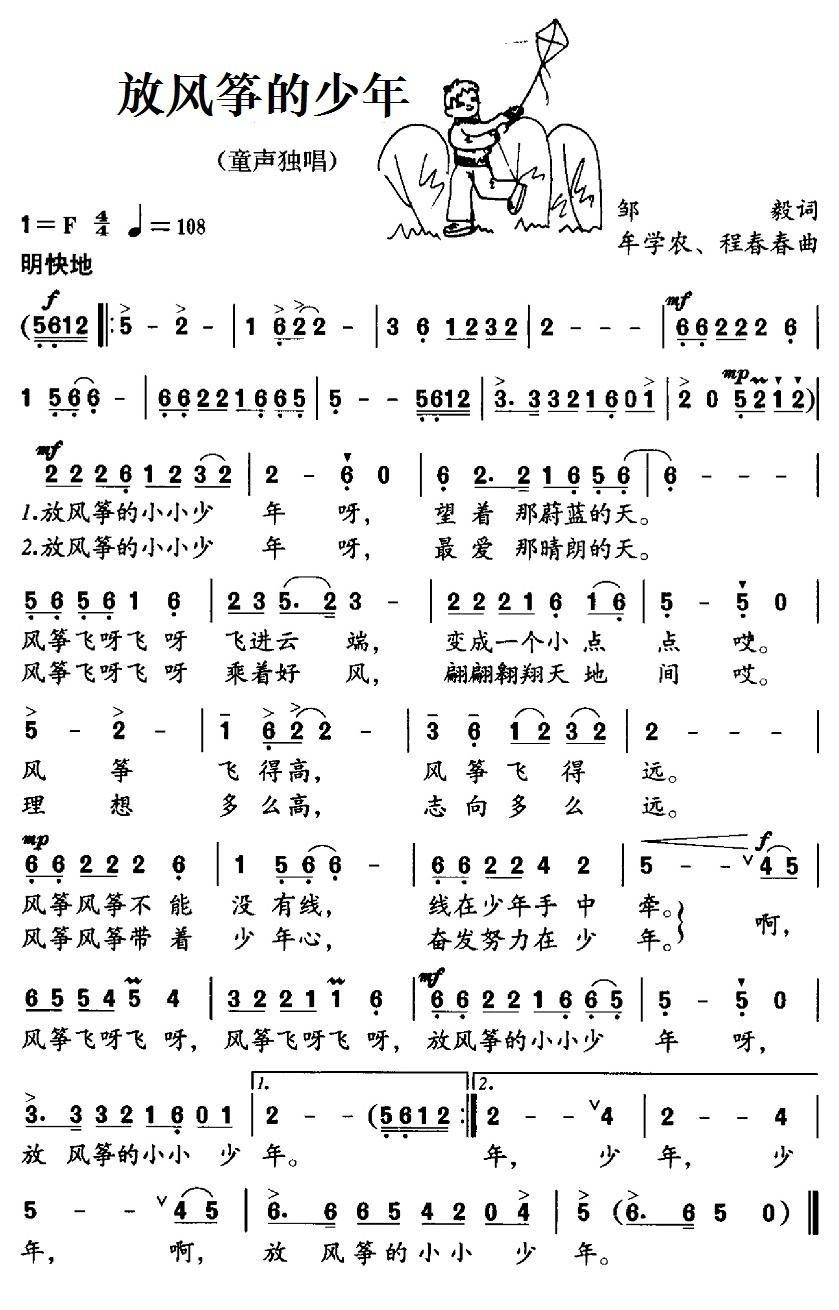 放风筝的少年
（童声独唱）
1=F 4/4 ♩=108
邹 毅词
牟学农、程春春曲
明快地
f
(5612 ‖: 5 - 2 - | 1 622 - | 3 6 1232 | 2 - - - | mf 66222 6 |
1 566 - | 66221665 | 5 - - 5612 | 3. 3321601 | 2 0 mp 5212)
mf
22261232 | 2 - 6 0 | 6 2. 21656 | 6 - - -
1.放风筝的小小少 年 呀， 望 着 那蔚蓝的天。
2.放风筝的小小少 年 呀， 最 爱 那晴朗的天。
56561 6 | 235. 23 - | 22216 16 | 5 - 5 0
风筝飞呀飞 呀 飞进云 端， 变成一个小 点 点 哎。
风筝飞呀飞 呀 乘着好 风， 翩翩翱翔天 地 间 哎。
5 - 2 - | 1 622 - | 3 6 1232 | 2 - - -
风 筝 飞得高， 风 筝 飞 得 远。
理 想 多么高， 志 向 多 么 远。
mp f
66222 6 | 1 566 - | 66224 2 | 5 - - ∨45
风筝风筝不 能 没 有线， 线在少年手 中 牵。 啊，
风筝风筝带 着 少 年心， 奋发努力在 少 年。
mf
65545 4 | 32211 6 | 66221665 | 5 - 5 0
风筝飞呀飞 呀， 风筝飞呀飞 呀， 放风筝的小小少 年 呀，
1. 2.
3. 3321601 | 2 - - (5612 :‖ 2 - - ∨4 | 2 - - 4
放 风筝的小小 少 年。 年， 少 年， 少
5 - - ∨45 | 6. 6654204 | 5 (6. 6 5 0) ‖
年， 啊， 放 风筝的小小 少 年。